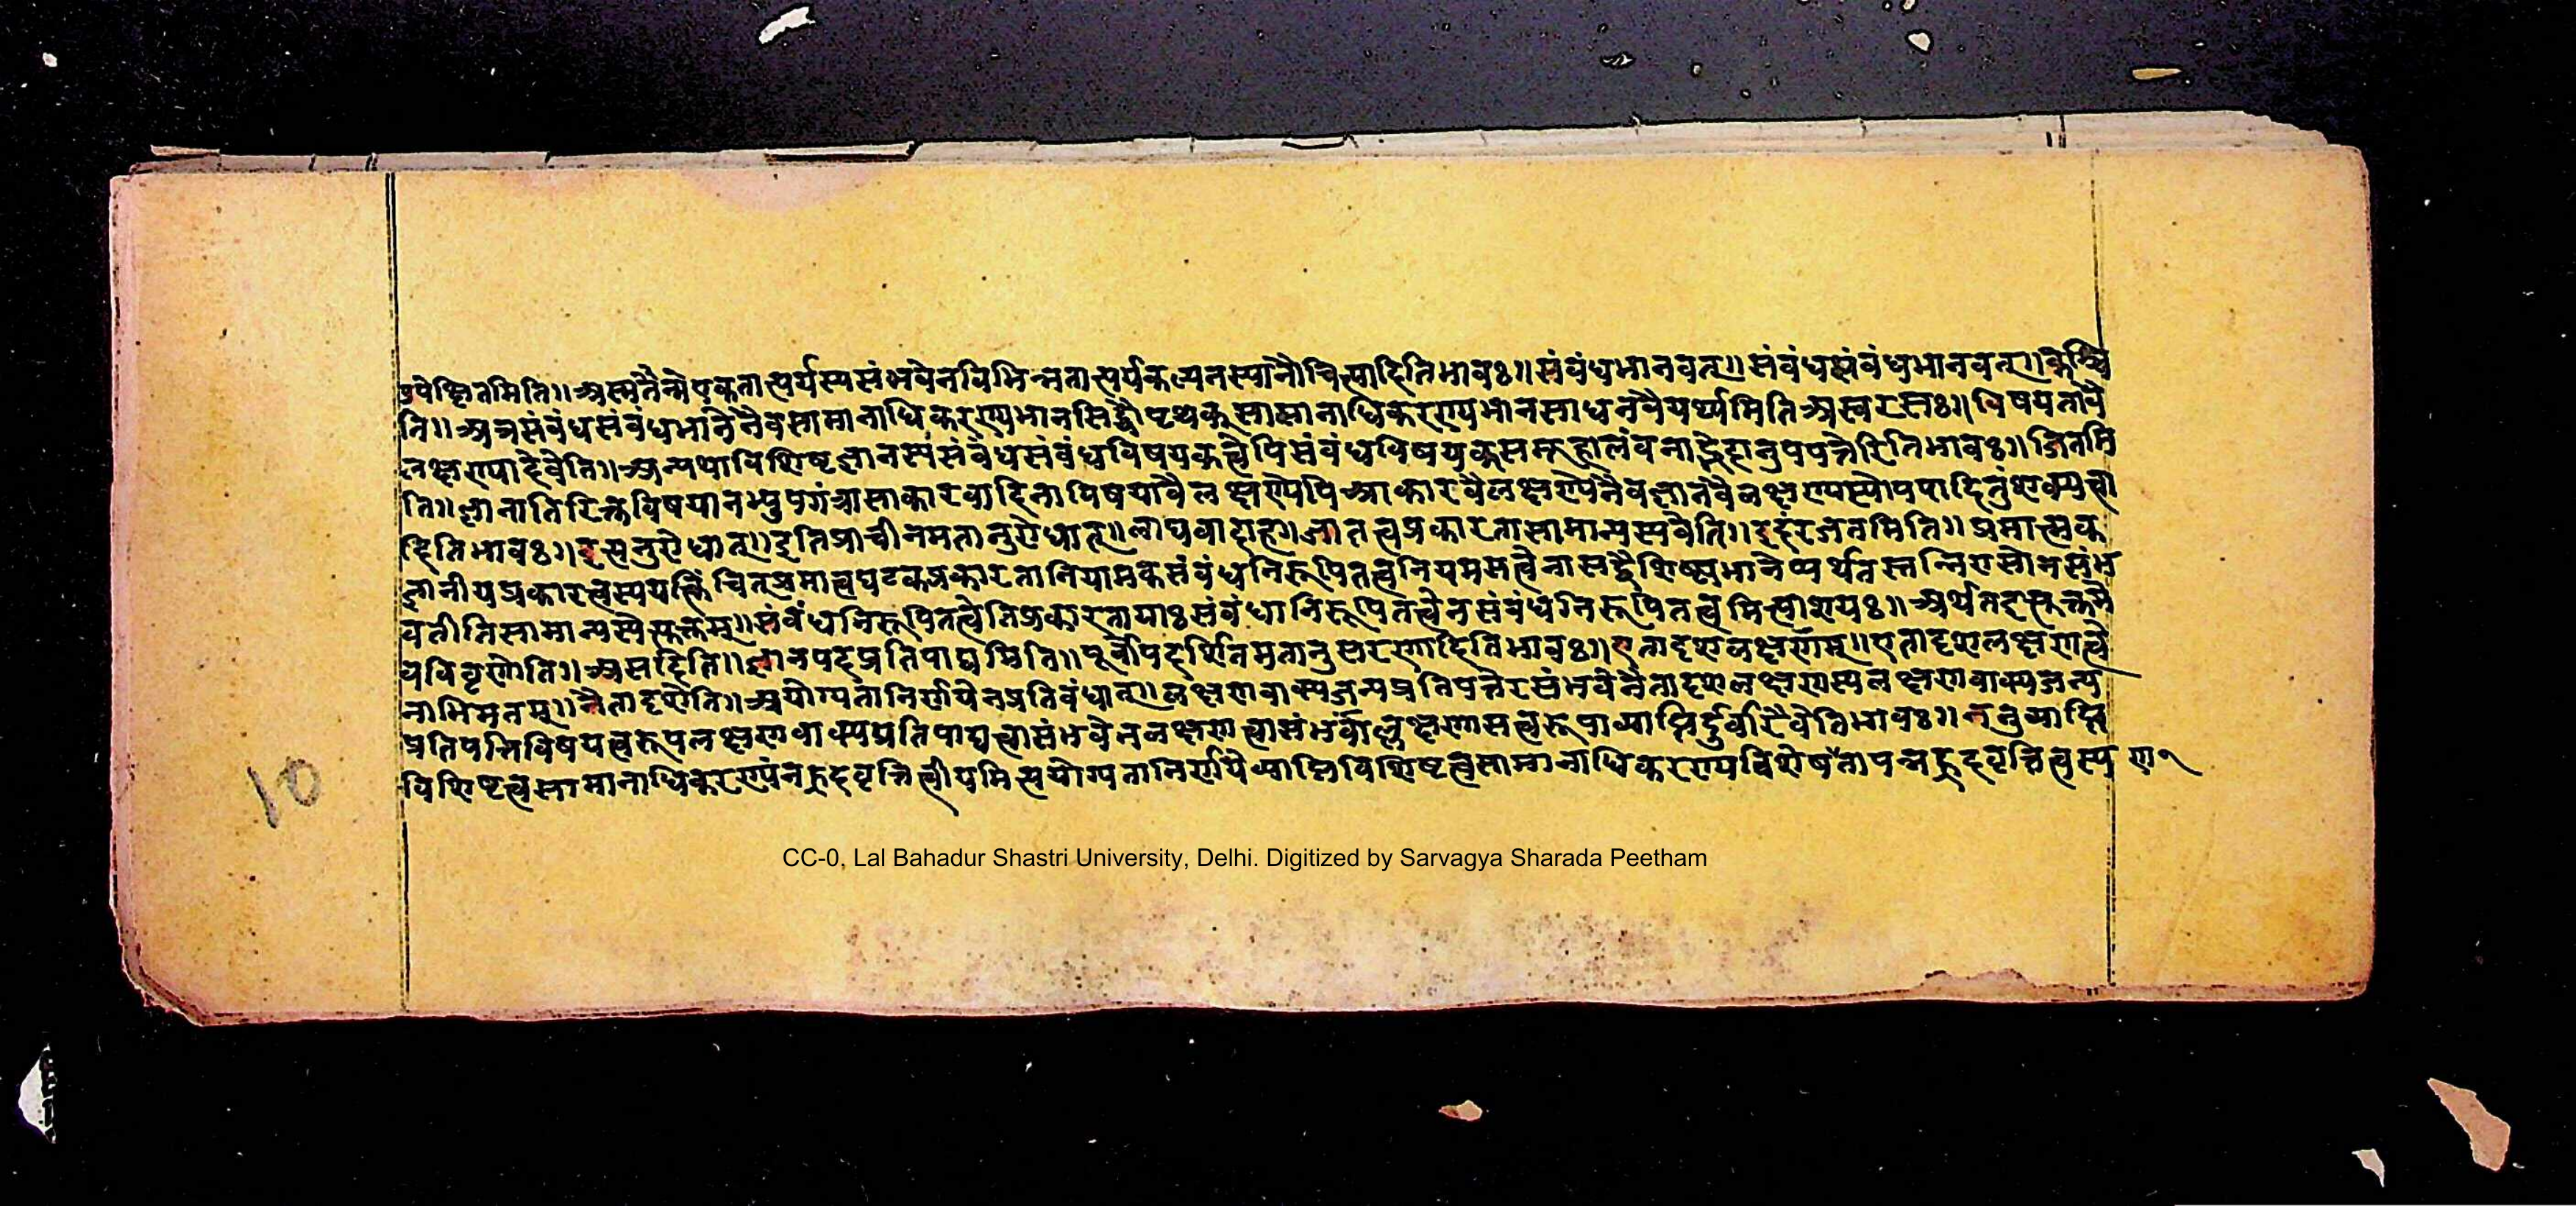 पेक्षितमिति॥अस्मन्मते एकतात्पर्यस्यसंभवेनविभिन्नतात्पर्यकल्पनस्यानौचित्यादितिभावः॥संबंधभानवत्॥संबंधसंबंधभानवत्॥केश्चि
ति॥अत्रसंबंधसंबंधभानेनैवसामानाधिकरण्यभानसिद्धौपृथक्सामानाधिकरण्यभानसाधनंवैयर्थ्यमितिअस्वरसः॥विषयतावै
लक्षण्यादेवेति॥अन्यथाविशिष्टज्ञानस्यसंबंधसंबंधविषयकत्वेपिसंबंधविषयकसमूहालंबनाद्भेदानुपपत्तेरितिभावः॥जितमि
ति॥ज्ञानातिरिक्तविषयानभ्युपगंत्रासाकारवादिनाविषयावैलक्षण्येपिआकारवैलक्षण्येनैवज्ञानवैलक्षण्यस्योपपादितुंशक्यत्वा
दितिभावः॥इत्यनुरोधात्॥इतिप्राचीनमतानुरोधात्॥लाघवादाह॥ज्ञातत्वप्रकारतासामान्यस्यवेति॥इदंरजतमिति॥प्रमात्मक
ज्ञानीयप्रकारत्वस्ययत्किंचित्प्रमात्वघटकप्रकारतानियामकसंबंधनिरूपितत्वनियमसत्वेनासद्वैशिष्ट्यभानेप्यर्थतस्तन्निरासोनसंभ
वतीतिसामान्यस्येत्युक्तम्॥संबंधनिरूपितत्वेतिप्रकारतायाःसंबंधानिरूपितत्वेनसंबंधनिरूपितत्वमित्याशयः॥अर्थतइत्युक्तमे
वविवृणोति॥असदिति॥ज्ञानपदप्रतिपाद्यमिति॥पूर्वोपदर्शितमतानुसरणादितिभावः॥एतादृशलक्षणम्॥एतादृशलक्षणत्वे
नाभिमतम्॥नैतादृशेति॥अयोग्यतानिर्णयेनप्रतिबंधात्॥लक्षणवाक्यजन्यप्रतिपत्तेरसंभवेनैतादृशलक्षणस्यलक्षणवाक्यजन्य
प्रतिपत्तिविषयत्वरूपलक्षणवाक्यप्रतिपाद्यत्वासंभवेनलक्षणत्वासंभवाल्लक्षणासत्वरूपाव्याप्तिर्दुर्वारैवेतिभावः॥ननुव्याप्ति
विशिष्टत्वसामानाधिकरण्यंनह्रदवृत्तित्वीयमित्ययोग्यतानिर्णयेव्याप्तिविशिष्टत्वसामानाधिकरण्यविशेषतापन्नह्रदवृत्तित्वस्य
10
CC-0, Lal Bahadur Shastri University, Delhi. Digitized by Sarvagya Sharada Peetham